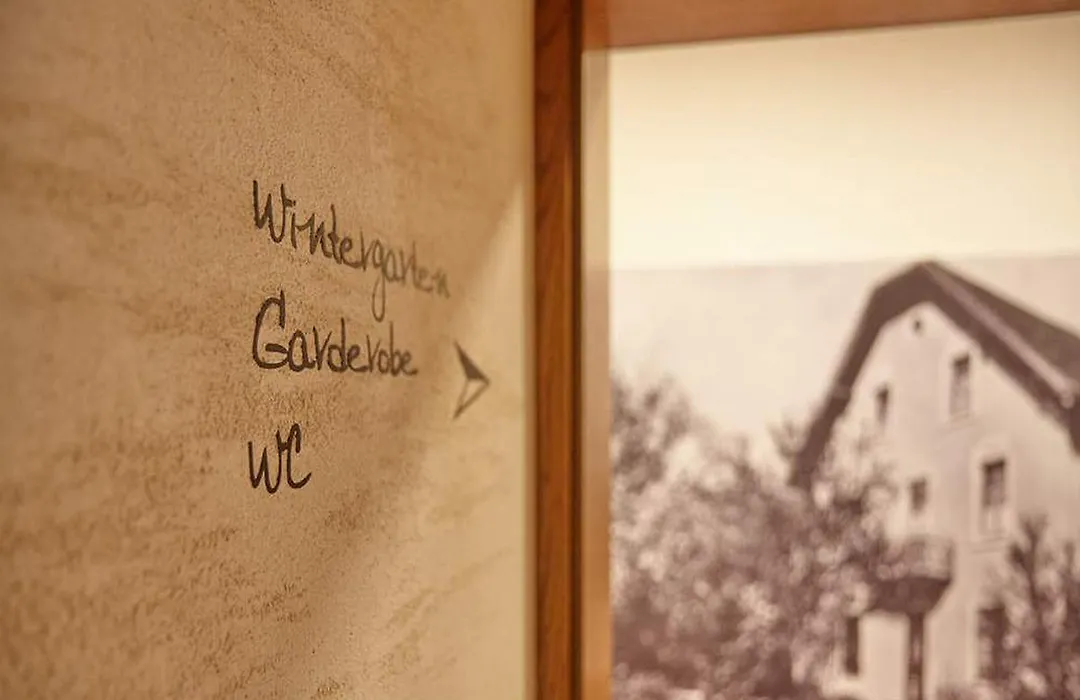 Wintergarten
Garderobe
WC